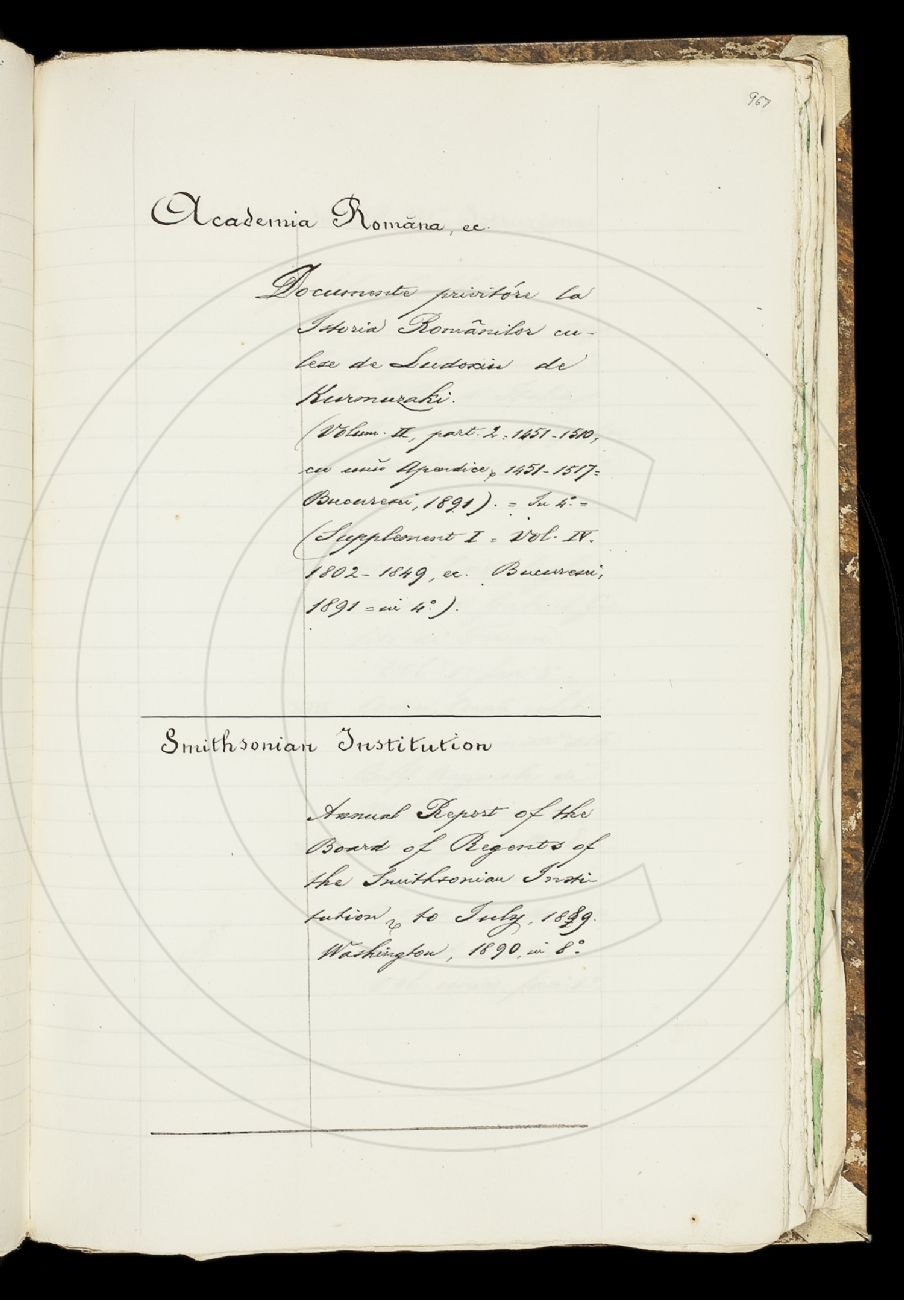 967
Academia Romăna, ec.
Documente privitóre la
Istoria Românilor cu-
lese de Eudoxiu de
Kurmuzaki.
(Volum. II, part. 2. 1451-1510,
cu unŭ Apendice, 1451-1517=
Bucuresci, 1891). = In 4° =
(Supplement I = Vol. IV.
1802-1849, ec. Bucuresci,
1891 = in 4°).
Smithsonian Institution
Annual Report of the
Board of Regents of
the Smithsonian Insti-
tution, to July, 1889.
Washington, 1890, in 8°.